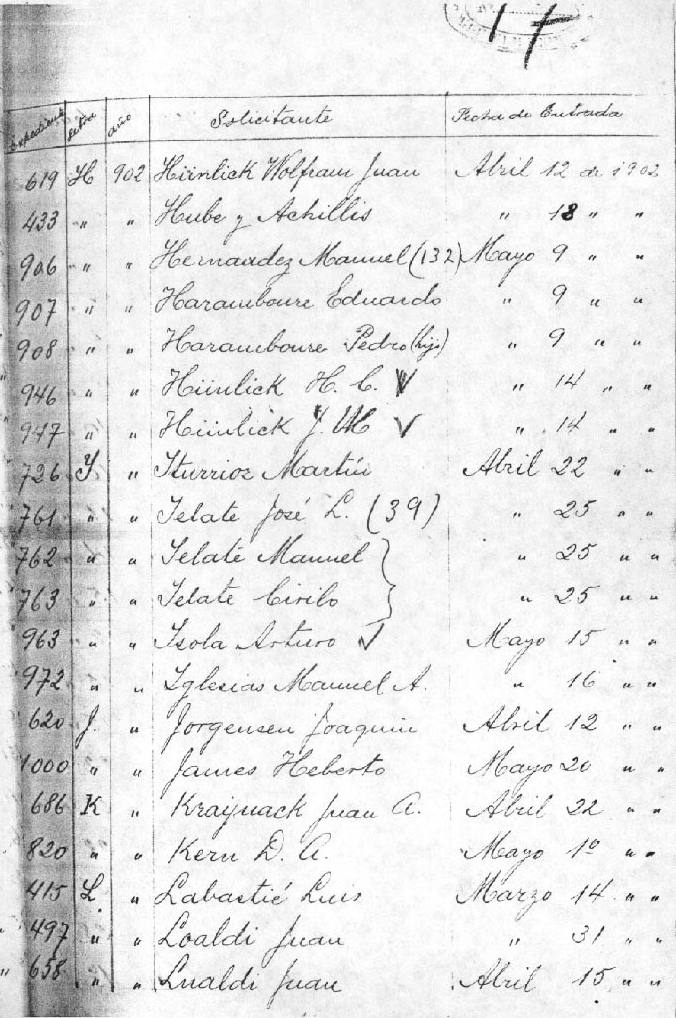 17
Expediente Letra año Solicitante Fecha de Entrada
619 H 902 Hünlick Wolfram Juan Abril 12 de 1902
433 " " Hube y Achillis " 18 " "
906 " " Hernandez Manuel (132) Mayo 9 " "
907 " " Haramboure Eduardo " 9 " "
908 " " Haramboure Pedro (hijo) " 9 " "
946 " " Hünlick H. C. V " 14 " "
947 " " Hünlick J. M. V " 14 " "
726 I " Iturrioz Martín Abril 22 " "
761 " " Ielate José L. (39) " 25 " "
762 " " Ielate Manuel } " 25 " "
763 " " Ielate Cirilo " 25 " "
963 " " Isola Arturo V Mayo 15 " "
972 " " Iglesias Manuel A. " 16 " "
620 J. " Jorgensen Joaquin Abril 12 " "
1000 " " James Heberto Mayo 20 " "
686 K " Kraynack Juan A. Abril 22 " "
820 " " Kern D. A. Mayo 1º " "
415 L. " Labastié Luis Marzo 14 " "
497 " " Loaldi Juan " 31 " "
" 658 " " Lualdi Juan Abril 15 " "